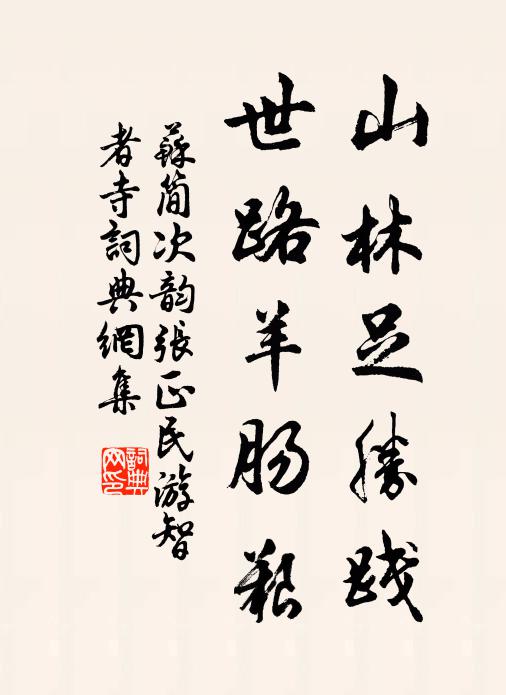 山林足勝踐
世路羊腸艱
蘇簡次韵張正民游智
者寺詞典網集
詞典网印